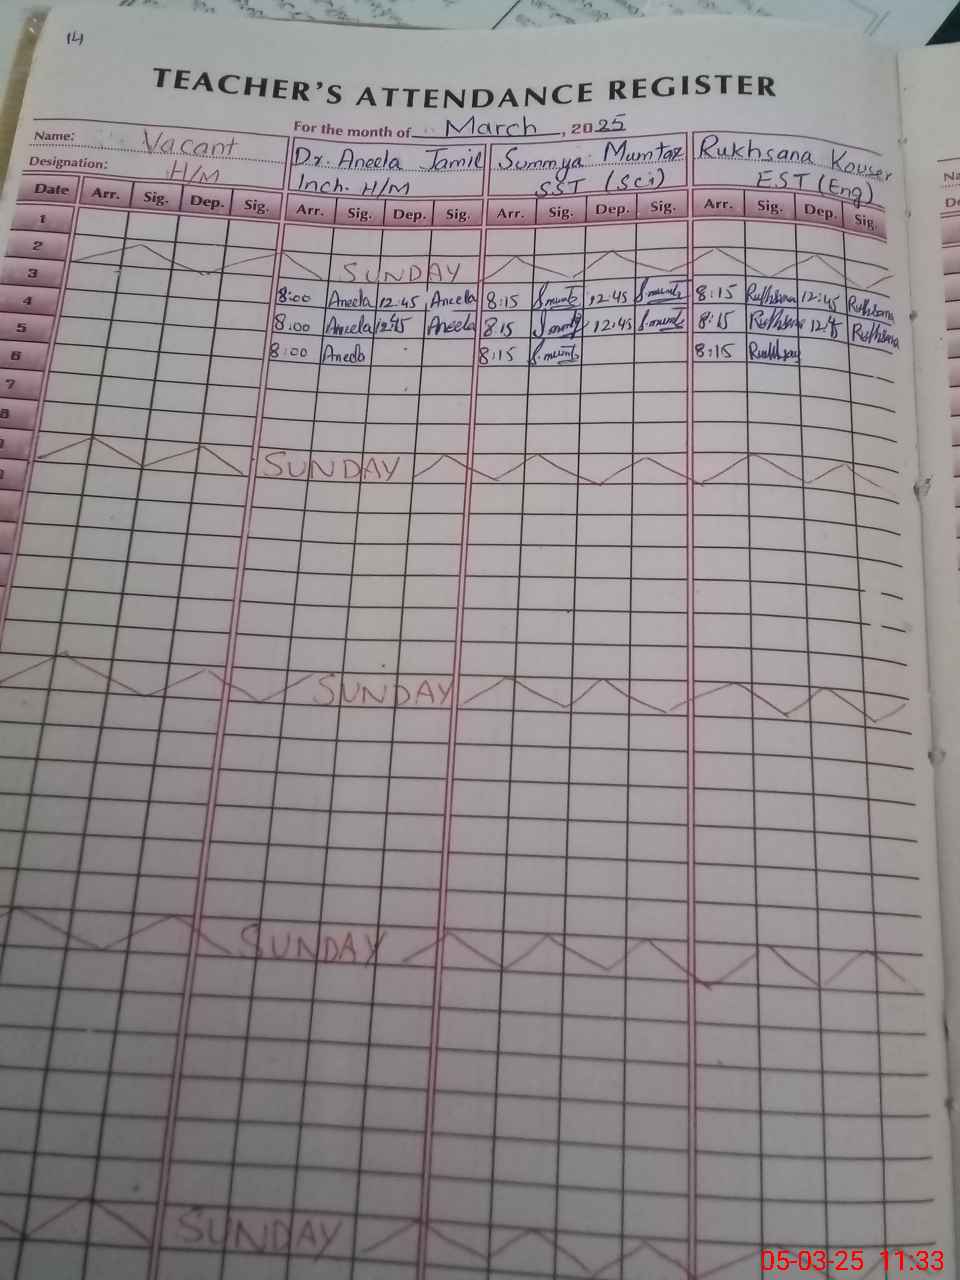 14
TEACHER'S ATTENDANCE REGISTER
For the month of March, 2025
Name: Vacant
Designation: H/M
Dr. Aneela Jamil
Inch. H/M
Summya Mumtaz
SST (Sci)
Rukhsana Kouser
EST (Eng)
Date Arr. Sig. Dep. Sig. Arr. Sig. Dep. Sig. Arr. Sig. Dep. Sig. Arr. Sig. Dep. Sig.
1
2 SUNDAY
3 8:00 Aneela 12:45 Aneela 8:15 S.mumtz 12:45 S.mumtz 8:15 Rukhsana 12:45 Rukhsana
4 8:00 Aneela 12:45 Aneela 8:15 S.mumtz 12:45 S.mumtz 8:15 Rukhsana 12:45 Rukhsana
5 8:00 Aneela 8:15 S.mumtz 8:15 Rukhsana
6
7
8
SUNDAY
SUNDAY
SUNDAY
SUNDAY
05-03-25 11:33